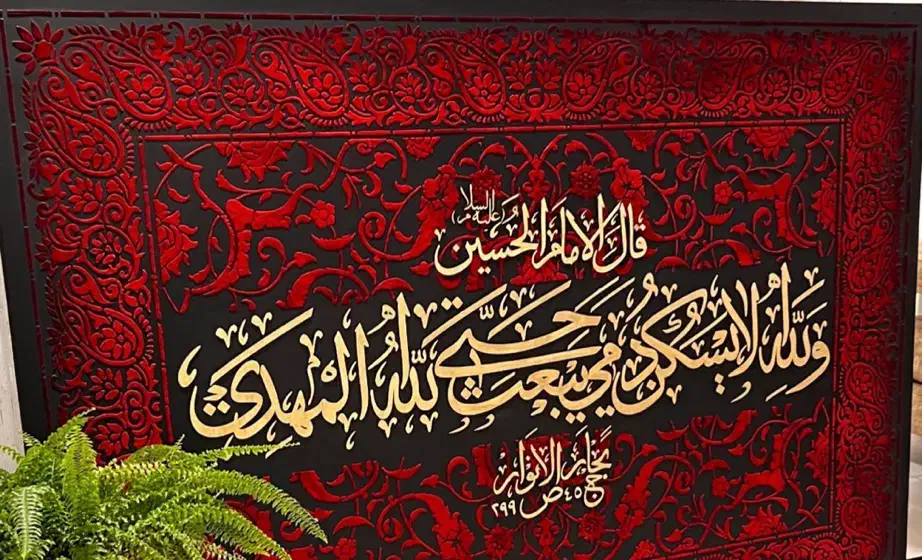 قَالَ الإمَامُ الحُسَین (علیه السلام)
وَاللهِ لا يَسْكُنُ دَمي حَتّىٰ يَبعَثَ اللهُ المَهدِيَّ
بحَار الأنوَار
ج ٤٥ ص ٢٩٩